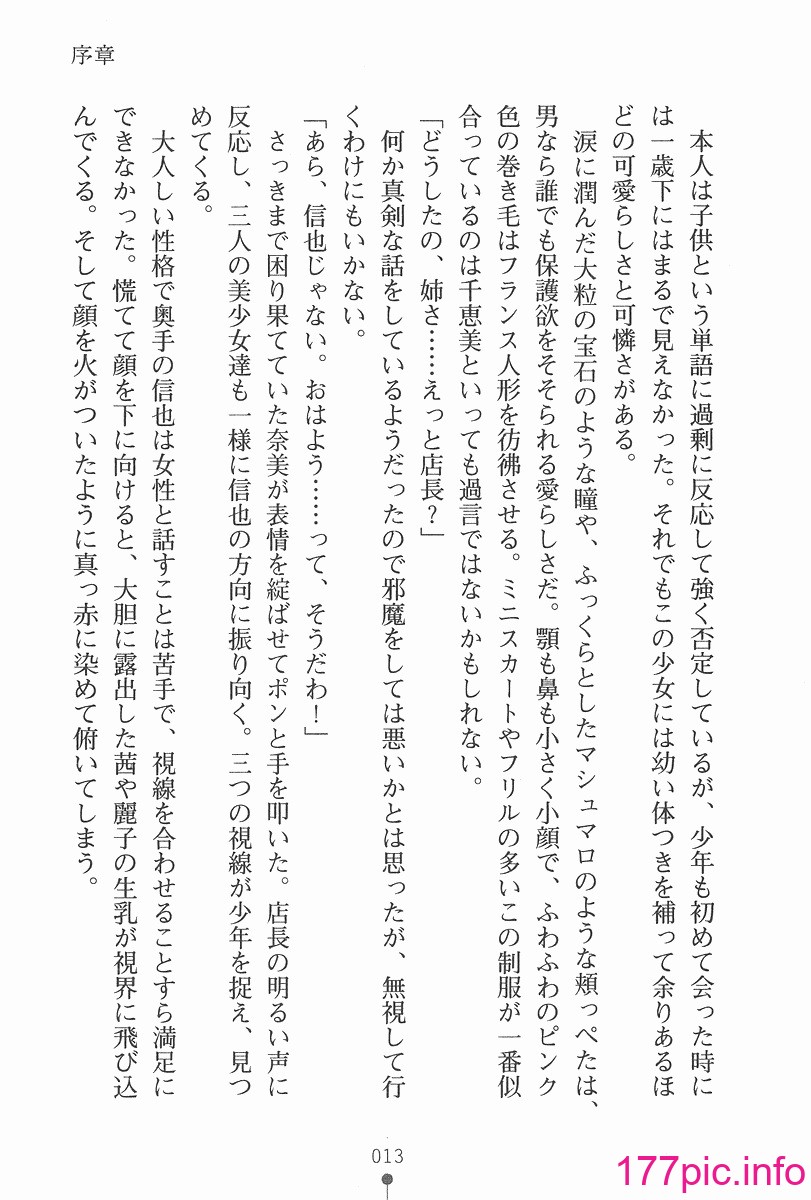 序章
本人は子供という単語に過剰に反応して強く否定しているが、少年も初めて会った時に
は一歳下にはまるで見えなかった。それでもこの少女には幼い体つきを補って余りあるほ
どの可愛らしさと可憐さがある。
涙に潤んだ大粒の宝石のような瞳や、ふっくらとしたマシュマロのような頬っぺたは、
男なら誰でも保護欲をそそられる愛らしさだ。顎も鼻も小さく小顔で、ふわふわのピンク
色の巻き毛はフランス人形を彷彿させる。ミニスカートやフリルの多いこの制服が一番似
合っているのは千恵美といっても過言ではないかもしれない。
「どうしたの、姉さ……えっと店長？」
何か真剣な話をしているようだったので邪魔をしては悪いかとは思ったが、無視して行
くわけにもいかない。
「あら、信也じゃない。おはよう……って、そうだわ！」
さっきまで困り果てていた奈美が表情を綻ばせてポンと手を叩いた。店長の明るい声に
反応し、三人の美少女達も一様に信也の方向に振り向く。三つの視線が少年を捉え、見つ
めてくる。
大人しい性格で奥手の信也は女性と話すことは苦手で、視線を合わせることすら満足に
できなかった。慌てて顔を下に向けると、大胆に露出した茜や麗子の生乳が視界に飛び込
んでくる。そして顔を火がついたように真っ赤に染めて俯いてしまう。
013
177pic.info